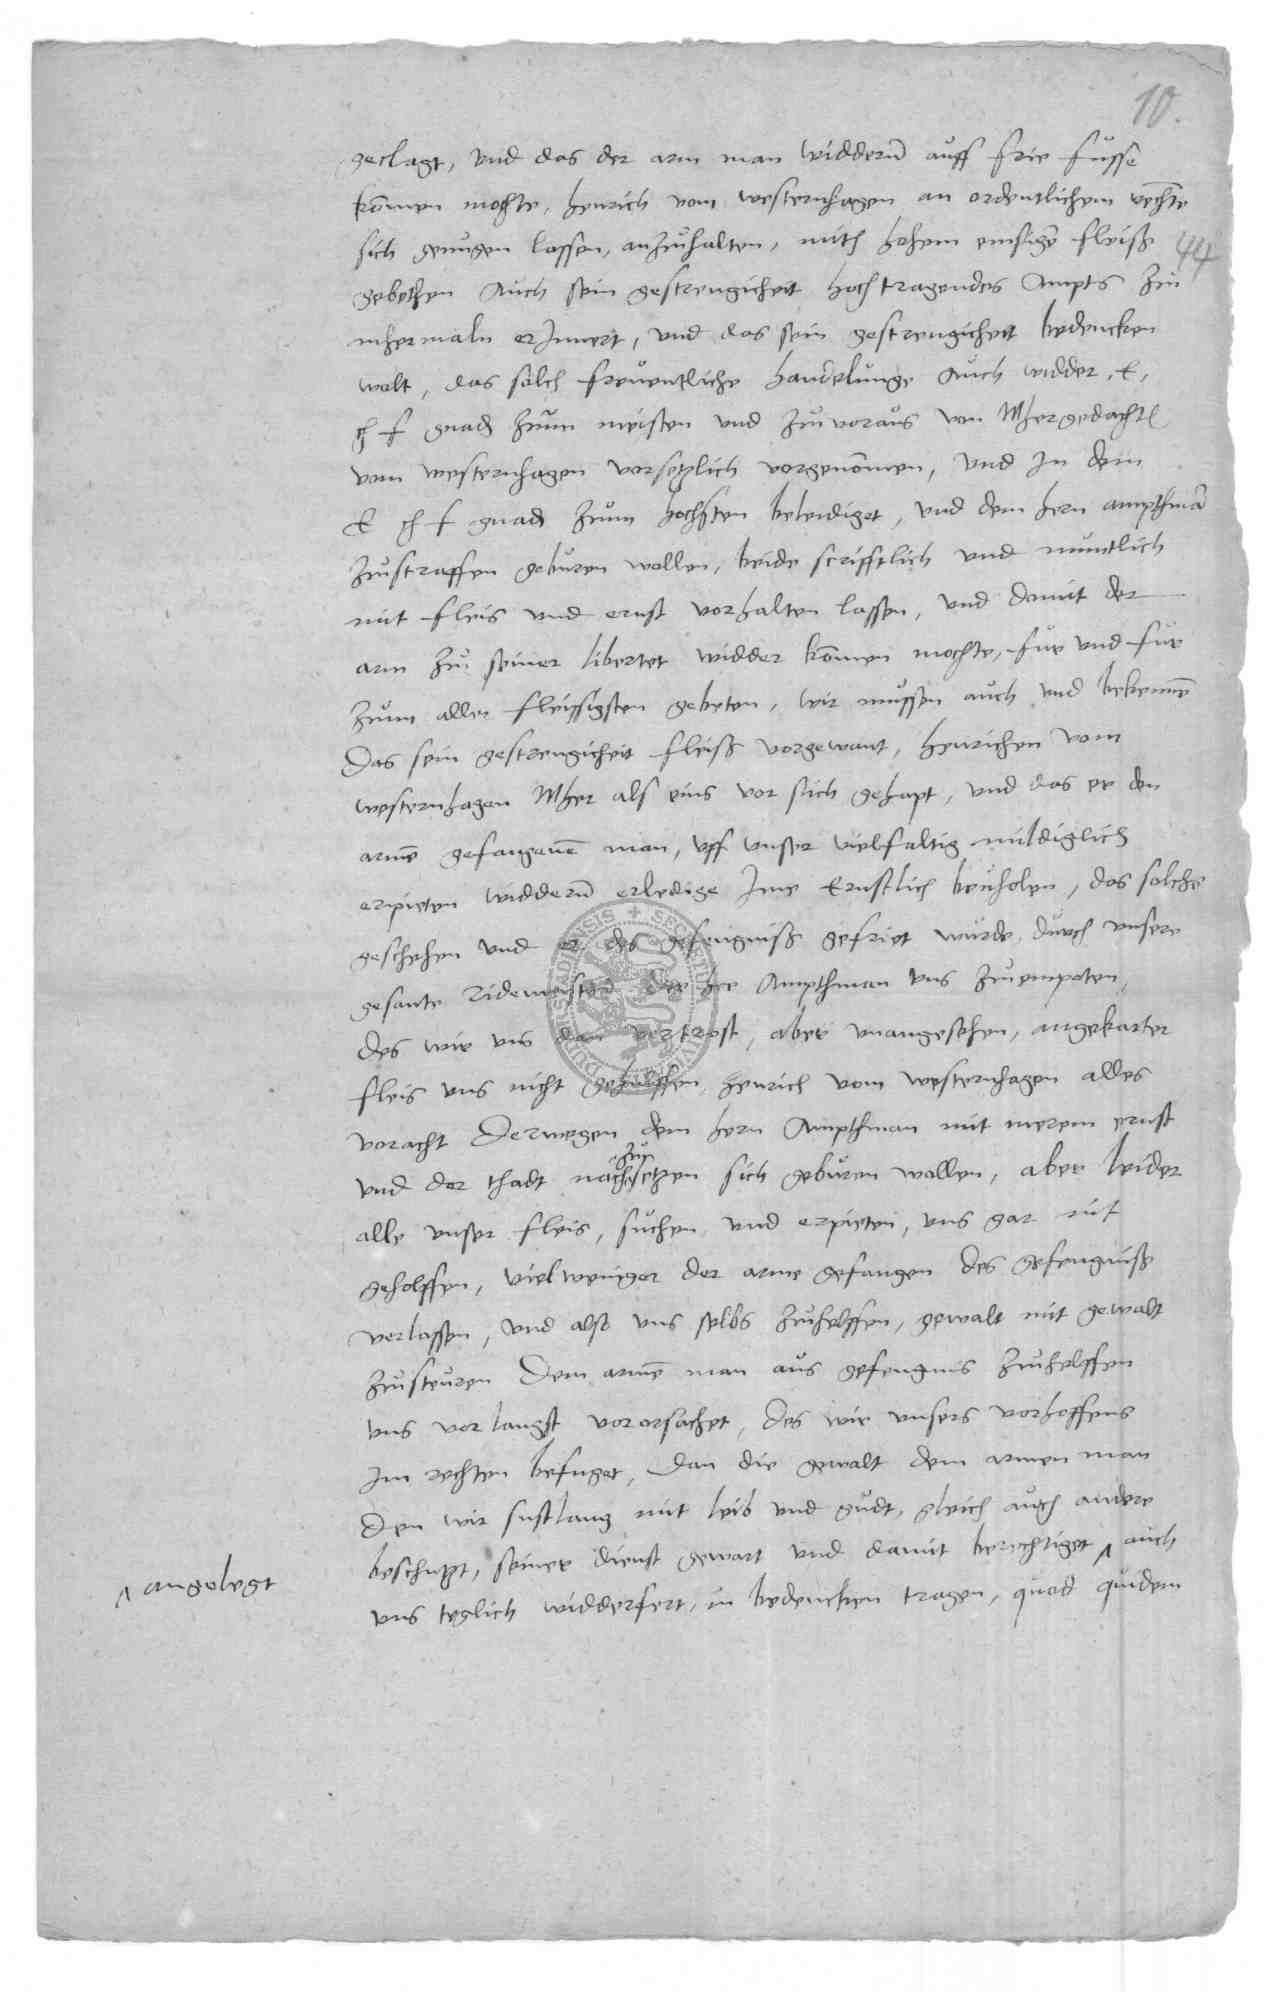 10.
geclagt, vnd das der arm man widderu̅ auff frie fusse
kom̅en mochte, henrich vom westernhagen an ordentlichem rechte
sich genugen lassen, anzuhalten, mith hohem emsige̅ fleiß
44
gebethen Auch sein gestrengicheit hoch tragendes Ampts zu
mhermaln erInnert, vnd das sein gestrengicheit bedencken
wolt, das solch freuentliche handelunge Auch widder, E,
ch f gnad zum meisten vnd zuuoraus von Mhergedacht
vom westernhagen vorsetzlich vorgenom̅en, vnd In dem
E ch f gnad zum hochsten beleidiget, vnd dem hern ampthma̅
zustraffen geburen wollen, beide scrifftlich vnd muntlich
mit fleis vnd ernst vorhalten lassen, vnd damit der
arm zu seiner libertet widder kom̅en mochte, fur vnd fur
zum aller fleissigsten gebeten, wir mussen auch vnd bekenne̅
Das sein gestrengicheit fleiß vorgewant, henrichen vom
westernhagen Mher als eins vor sich gehapt, vnd das er den
arme̅ gefangene̅ man, vff vnser vielfaltig mildiglich
erpieten widderu̅ erledige Ime Ernstlich beuholen, das solche
geschehen vnd er des gefengniß gefriet wurde, durch vnsere
gesante Ridemeister der her Ampthman vns zuempoten,
des wir vns dan vertrost, aber vnangesehen, angekarter
fleis vns nicht geholffen, henrich vom westernhagen alles
voracht Derwegen dem hern Ampthman mit merem ernst
vnd der thadt nach zu setzen sich geburen wollen, aber leider
alle vnser fleis, suchen vnd erpieten, vns gar nit
geholffen, vielweniger der arme gefangen des gefengniß
verlassen, vnd also vns selbs zuhelffen, gewalt mit gewalt
zusteuren Dem arme̅ man aus gefengnis zuhelffen
vns vor langst vorursachet, des wir vnsers vorhoffens
Im rechten befuget, Dan die gewalt dem armen man
Den wir sustlang mit leib vnd gudt, gleich auch andere
beschutzt, seiner dienst gewart vnd damit berechtiget ^ auch
^ angelegt
vns teglich widderfert, in bedencken tragen, quod quidem